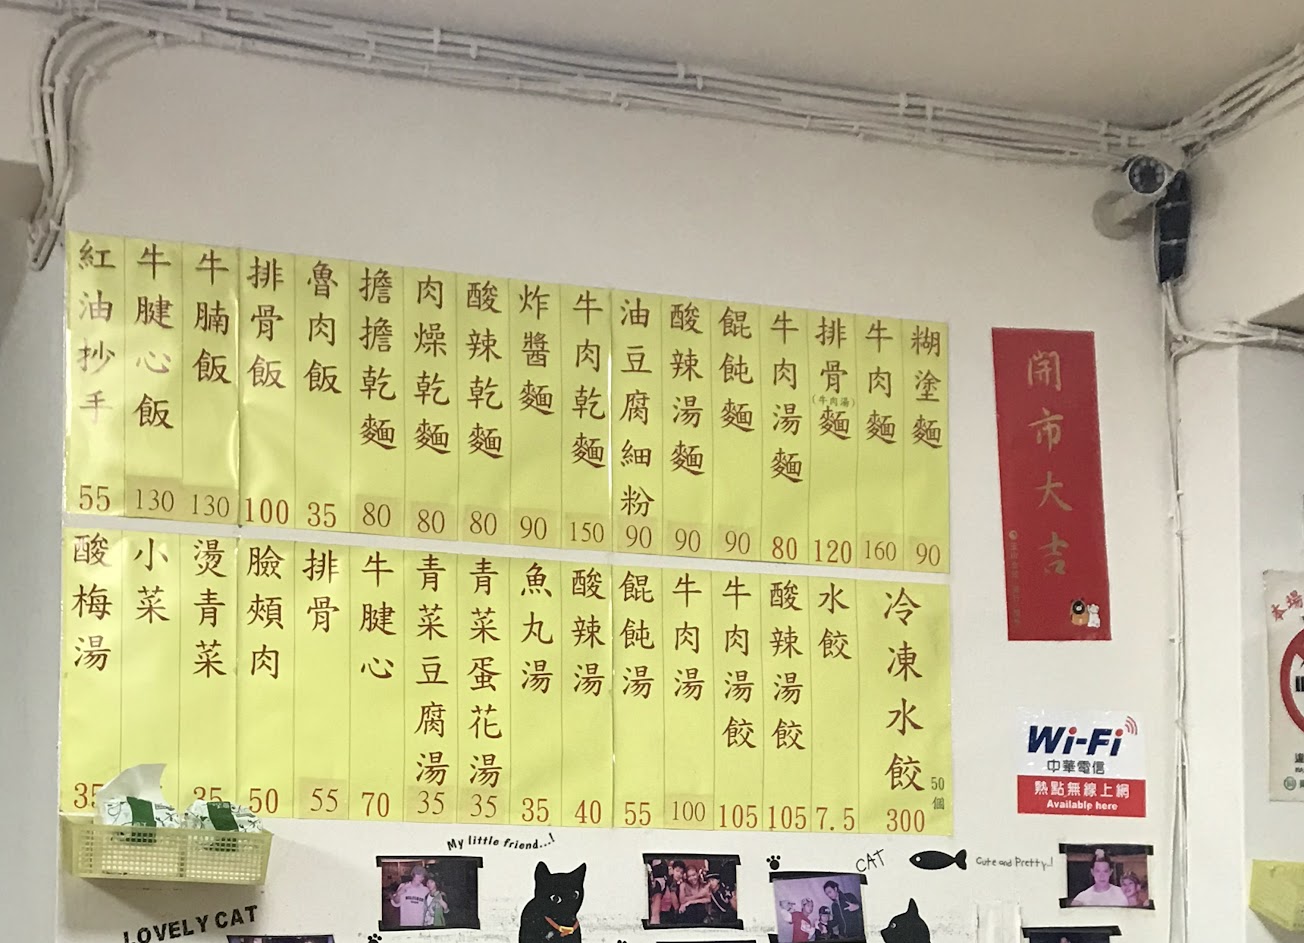 糊塗麵 90
牛肉麵 160
排骨麵 (牛肉湯) 120
牛肉湯麵 80
餛飩麵 90
酸辣湯麵 90
油豆腐細粉 90
牛肉乾麵 150
炸醬麵 90
酸辣乾麵 80
肉燥乾麵 80
擔擔乾麵 80
魯肉飯 35
排骨飯 100
牛腩飯 130
牛腱心飯 130
紅油抄手 55
冷凍水餃 50個 300
水餃 7.5
酸辣湯餃 105
牛肉湯餃 105
牛肉湯 100
餛飩湯 55
酸辣湯 40
魚丸湯 35
青菜蛋花湯 35
青菜豆腐湯 35
牛腱心 70
排骨 55
臉頰肉 50
燙青菜 35
小菜
酸梅湯 35
開市大吉
Wi-Fi
中華電信
熱點無線上網
Available here
My little friend...!
CAT
Cute and Pretty..!
LOVELY CAT